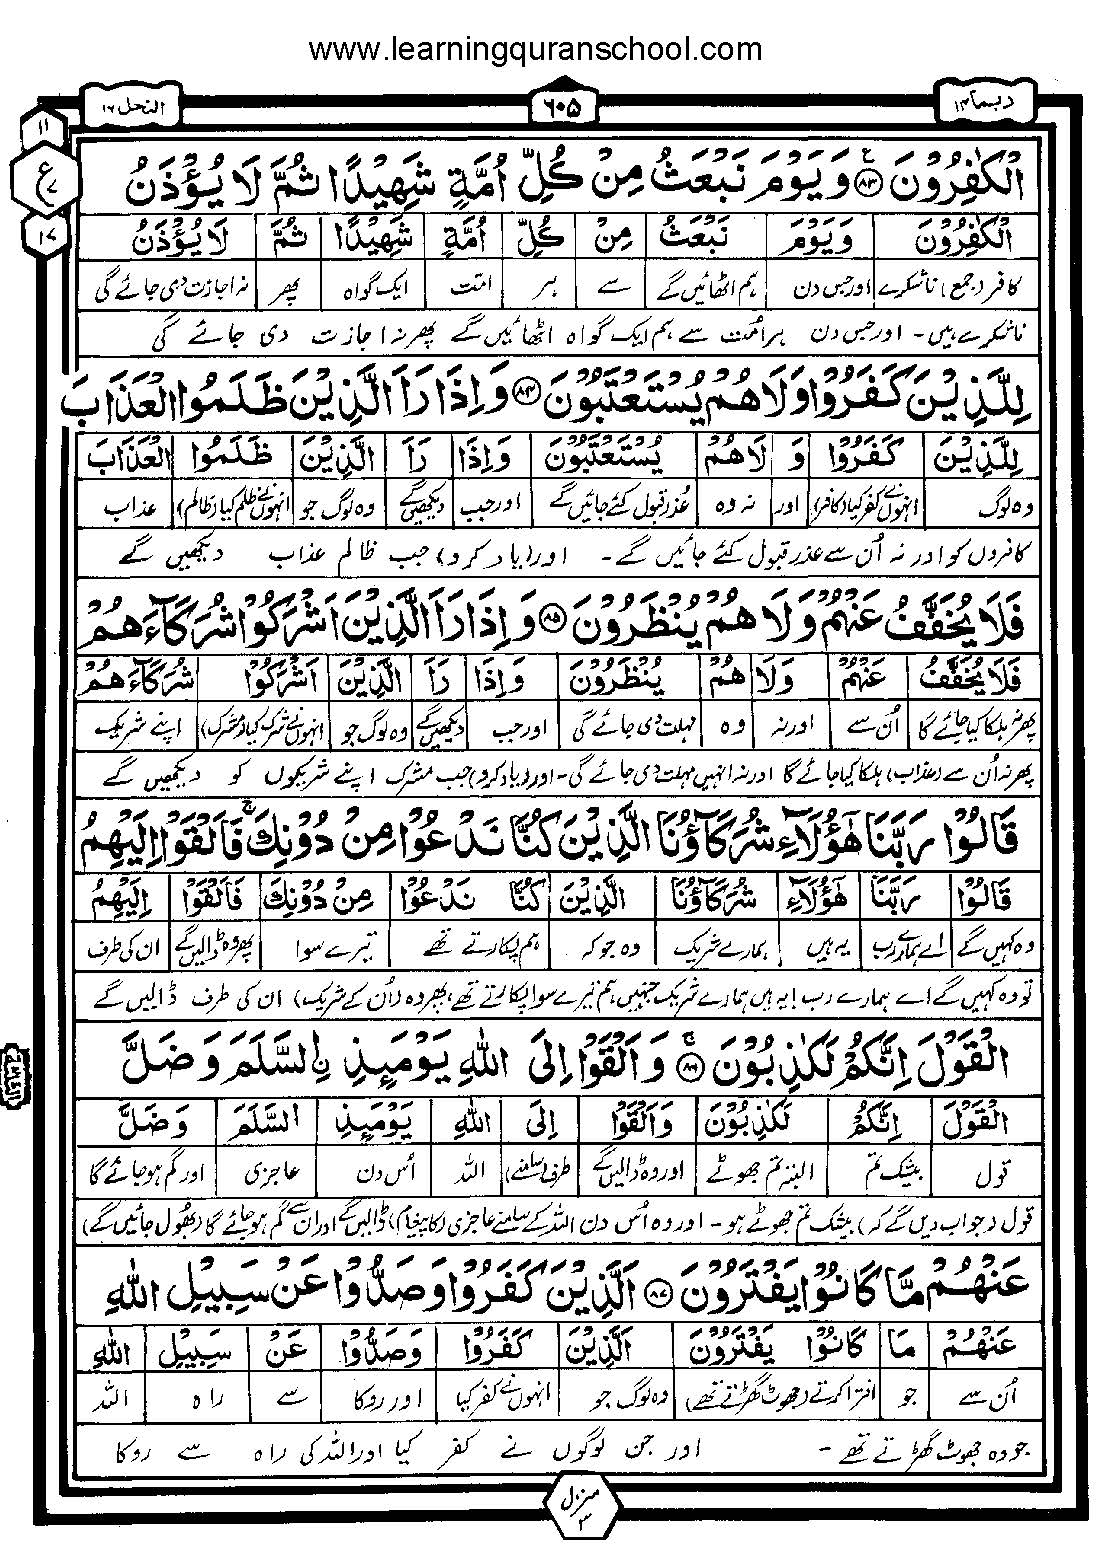 www.learningquranschool.com
ربما ۱۴
٦٠٥
النحل ١٦
١١
ع
٧
١٧
الْكٰفِرُوْنَ ﴿٨٣﴾ وَيَوْمَ نَبْعَثُ مِنْ كُلِّ اُمَّةٍ شَهِيْدًا ثُمَّ لَا يُؤْذَنُ
الْكٰفِرُوْنَ وَيَوْمَ نَبْعَثُ مِنْ كُلِّ اُمَّةٍ شَهِيْدًا ثُمَّ لَا يُؤْذَنُ
کافر (جمع) ناشکرے اور جس دن ہم اٹھائیں گے سے ہر امت ایک گواہ پھر نہ اجازت دی جائے گی
ناشکرے ہیں۔ اور جس دن ہر اُمت سے ہم ایک گواہ اٹھائیں گے پھر نہ اجازت دی جائے گی
لِلَّذِيْنَ كَفَرُوْا وَلَا هُمْ يُسْتَعْتَبُوْنَ ﴿٨٤﴾ وَاِذَا رَاَ الَّذِيْنَ ظَلَمُوا الْعَذَابَ
لِلَّذِيْنَ كَفَرُوْا وَ لَا هُمْ يُسْتَعْتَبُوْنَ وَاِذَا رَاَ الَّذِيْنَ ظَلَمُوا الْعَذَابَ
وہ لوگ انہوں نے کفر کیا (کافر) اور نہ وہ عذر قبول کئے جائیں گے اور جب دیکھیں گے وہ لوگ جو انہوں نے ظلم کیا (ظالم) عذاب
کافروں کو اور نہ اُن سے عذر قبول کئے جائیں گے۔ اور (یاد کرو) جب ظالم عذاب دیکھیں گے
فَلَا يُخَفَّفُ عَنْهُمْ وَلَا هُمْ يُنْظَرُوْنَ ﴿٨٥﴾ وَاِذَا رَاَ الَّذِيْنَ اَشْرَكُوْا شُرَكَآءَهُمْ
فَلَا يُخَفَّفُ عَنْهُمْ وَلَا هُمْ يُنْظَرُوْنَ وَاِذَا رَاَ الَّذِيْنَ اَشْرَكُوْا شُرَكَآءَهُمْ
پھر نہ ہلکا کیا جائے گا اُن سے اور نہ وہ مہلت دی جائے گی اور جب دیکھیں گے وہ لوگ جو انہوں نے شرک کیا (مشرک) اپنے شریک
پھر نہ اُن سے (عذاب) ہلکا کیا جائے گا اور نہ انہیں مہلت دی جائے گی۔ اور (یاد کرو) جب مشرک اپنے شریکوں کو دیکھیں گے
قَالُوْا رَبَّنَا هٰٓؤُلَآءِ شُرَكَآؤُنَا الَّذِيْنَ كُنَّا نَدْعُوْا مِنْ دُوْنِكَ ۚ فَاَلْقَوْا اِلَيْهِمُ
قَالُوْا رَبَّنَا هٰٓؤُلَآءِ شُرَكَآؤُنَا الَّذِيْنَ كُنَّا نَدْعُوْا مِنْ دُوْنِكَ فَاَلْقَوْا اِلَيْهِمُ
وہ کہیں گے اے ہمارے رب یہ ہیں ہمارے شریک وہ جو کہ ہم پکارتے تھے تیرے سوا پھر وہ ڈالیں گے ان کی طرف
تو وہ کہیں گے اے ہمارے رب! یہ ہیں ہمارے شریک جنہیں ہم تیرے سوا پکارتے تھے، پھر وہ (اُن کے شریک) ان کی طرف ڈالیں گے
الْقَوْلَ اِنَّكُمْ لَكٰذِبُوْنَ ﴿٨٦﴾ وَاَلْقَوْا اِلَى اللّٰهِ يَوْمَئِذِ ِۨالسَّلَمَ وَضَلَّ
الْقَوْلَ اِنَّكُمْ لَكٰذِبُوْنَ وَاَلْقَوْا اِلَى اللّٰهِ يَوْمَئِذِ السَّلَمَ وَضَلَّ
قول بیشک تم البتہ تم جھوٹے اور وہ ڈالیں گے طرف (سامنے) اللہ اُس دن عاجزی اور گم ہو جائے گا
قول (جواب دیں گے کہ) بیشک تم جھوٹے ہو۔ اور وہ اُس دن اللہ کے سامنے عاجزی (کا پیغام) ڈالیں گے اور ان سے گم ہو جائے گا (بھول جائیں گے)
عَنْهُمْ مَّا كَانُوْا يَفْتَرُوْنَ ﴿٨٧﴾ اَلَّذِيْنَ كَفَرُوْا وَصَدُّوْا عَنْ سَبِيْلِ اللّٰهِ
عَنْهُمْ مَا كَانُوْا يَفْتَرُوْنَ اَلَّذِيْنَ كَفَرُوْا وَصَدُّوْا عَنْ سَبِيْلِ اللّٰهِ
اُن سے جو افترا کرتے (جھوٹ گھڑتے تھے) وہ لوگ جو انہوں نے کفر کیا اور روکا سے راہ اللہ
جو وہ جھوٹ گھڑتے تھے۔ اور جن لوگوں نے کفر کیا اور اللہ کی راہ سے روکا
منزل ۳